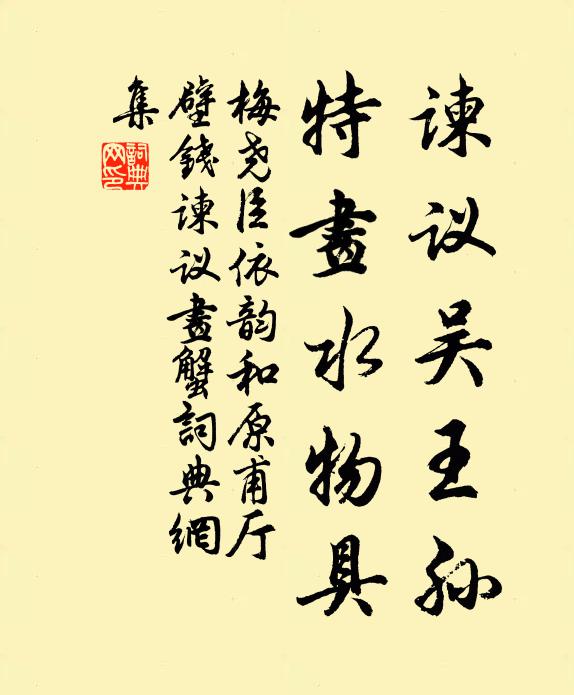 谏议吴王孙
特畫水物具
梅尧臣依韵和原甫厅
壁钱谏议畫蟹詞典網
集
詞典网印